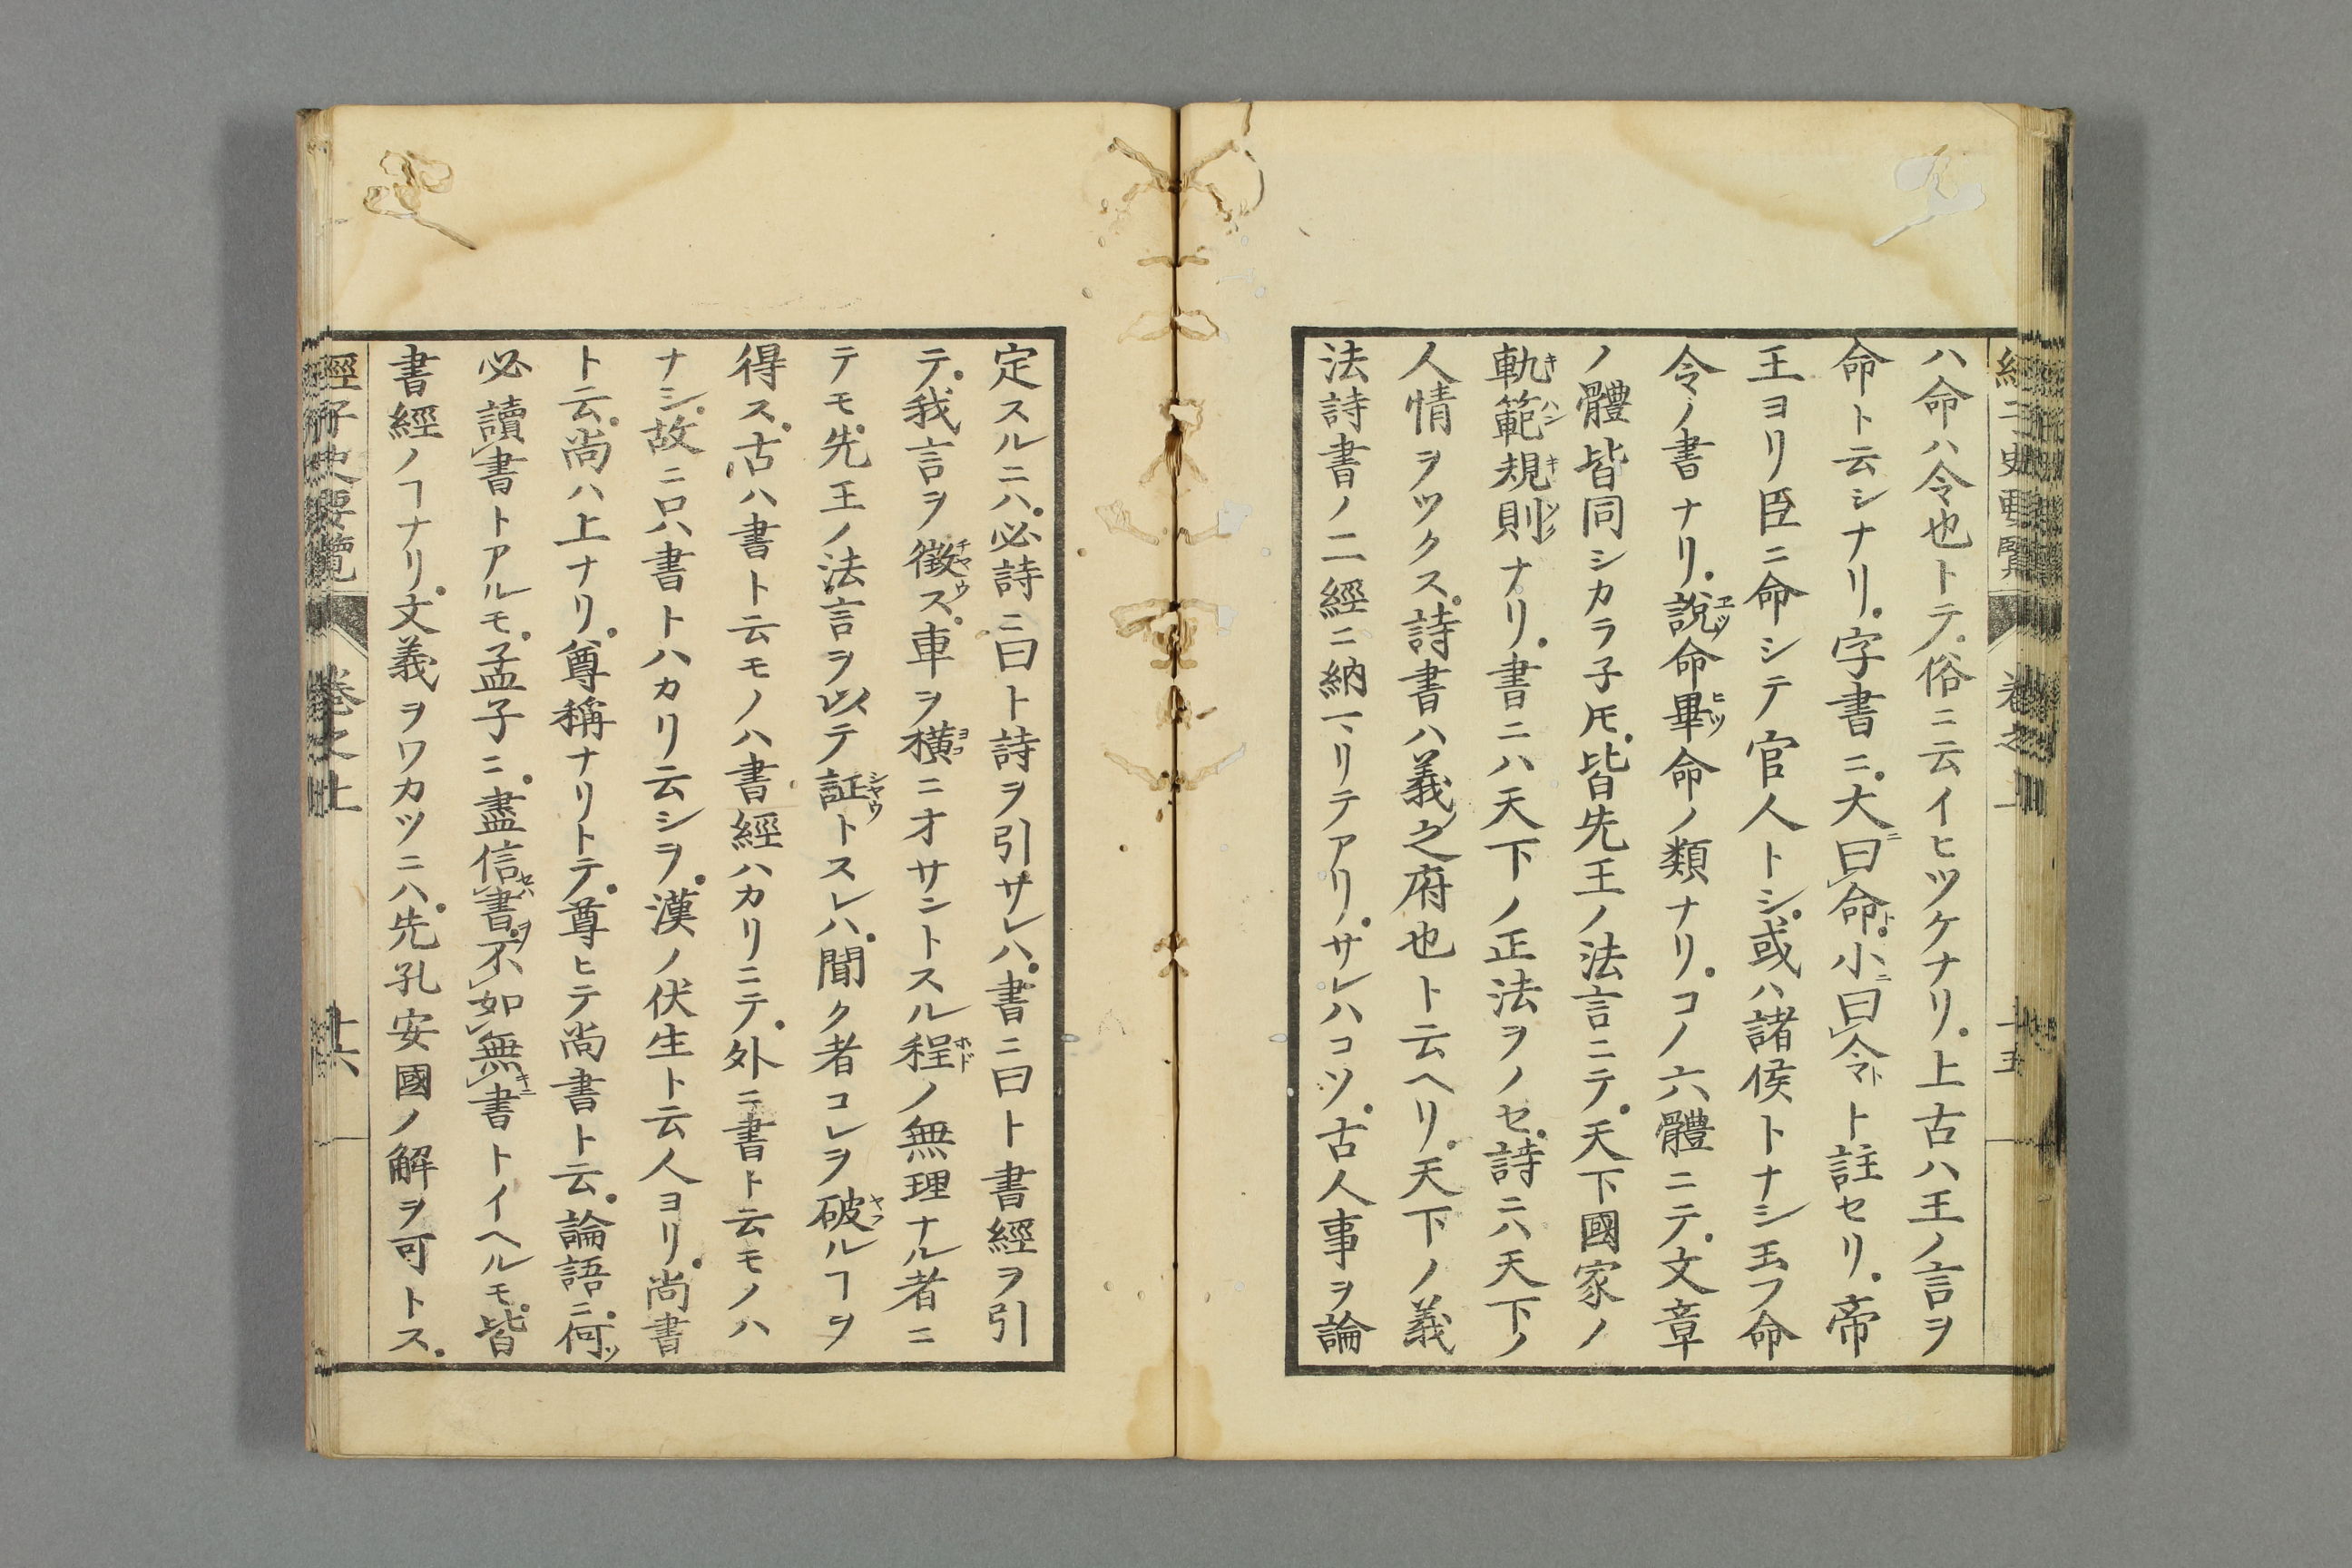 經子史要覽 卷之上 十五
ハ命ハ令也トテ。俗ニ云イヒツケナリ。上古ハ王ノ言ヲ
命ト云シナリ。字書ニ。大曰命。小曰令ト註セリ。帝
王ヨリ臣ニ命シテ官人トシ。或ハ諸侯トナシ玉フ命
令ノ書ナリ。說命畢命ノ類ナリ。コノ六體ニテ。文章
ノ體皆同シカラ子𪜈。皆先王ノ法言ニテ。天下國家ノ
軌範規則ナリ。書ニハ天下ノ正法ヲノセ。詩ニハ天下ノ
人情ヲツクス。詩書ハ義之府也ト云ヘリ。天下ノ義
法詩書ノ二經ニ納マリテアリ。サレハコソ。古人事ヲ論
定スルニハ。必詩ニ曰ト詩ヲ引サレハ。書ニ曰ト書經ヲ引
テ。我言ヲ徵ス。車ヲ橫ニオサントスル程ノ無理ナル者ニ
テモ。先王ノ法言ヲ以テ証トスレハ。聞ク者コレヲ破ルヿヲ
得ス。古ハ書ト云モノハ書經ハカリニテ。外ニ書ト云モノハ
ナシ。故ニ只書トハカリ云シヲ。漢ノ伏生ト云人ヨリ。尚書
ト云。尚ハ上ナリ。尊稱ナリトテ。尊ヒテ尚書ト云。論語ニ。何
必讀書トアルモ。孟子ニ。盡信書。不如無書トイヘルモ。皆
書經ノヿナリ。文義ヲワカツニハ。先孔安國ノ解ヲ可トス。
經子史要覽 卷之上 十六